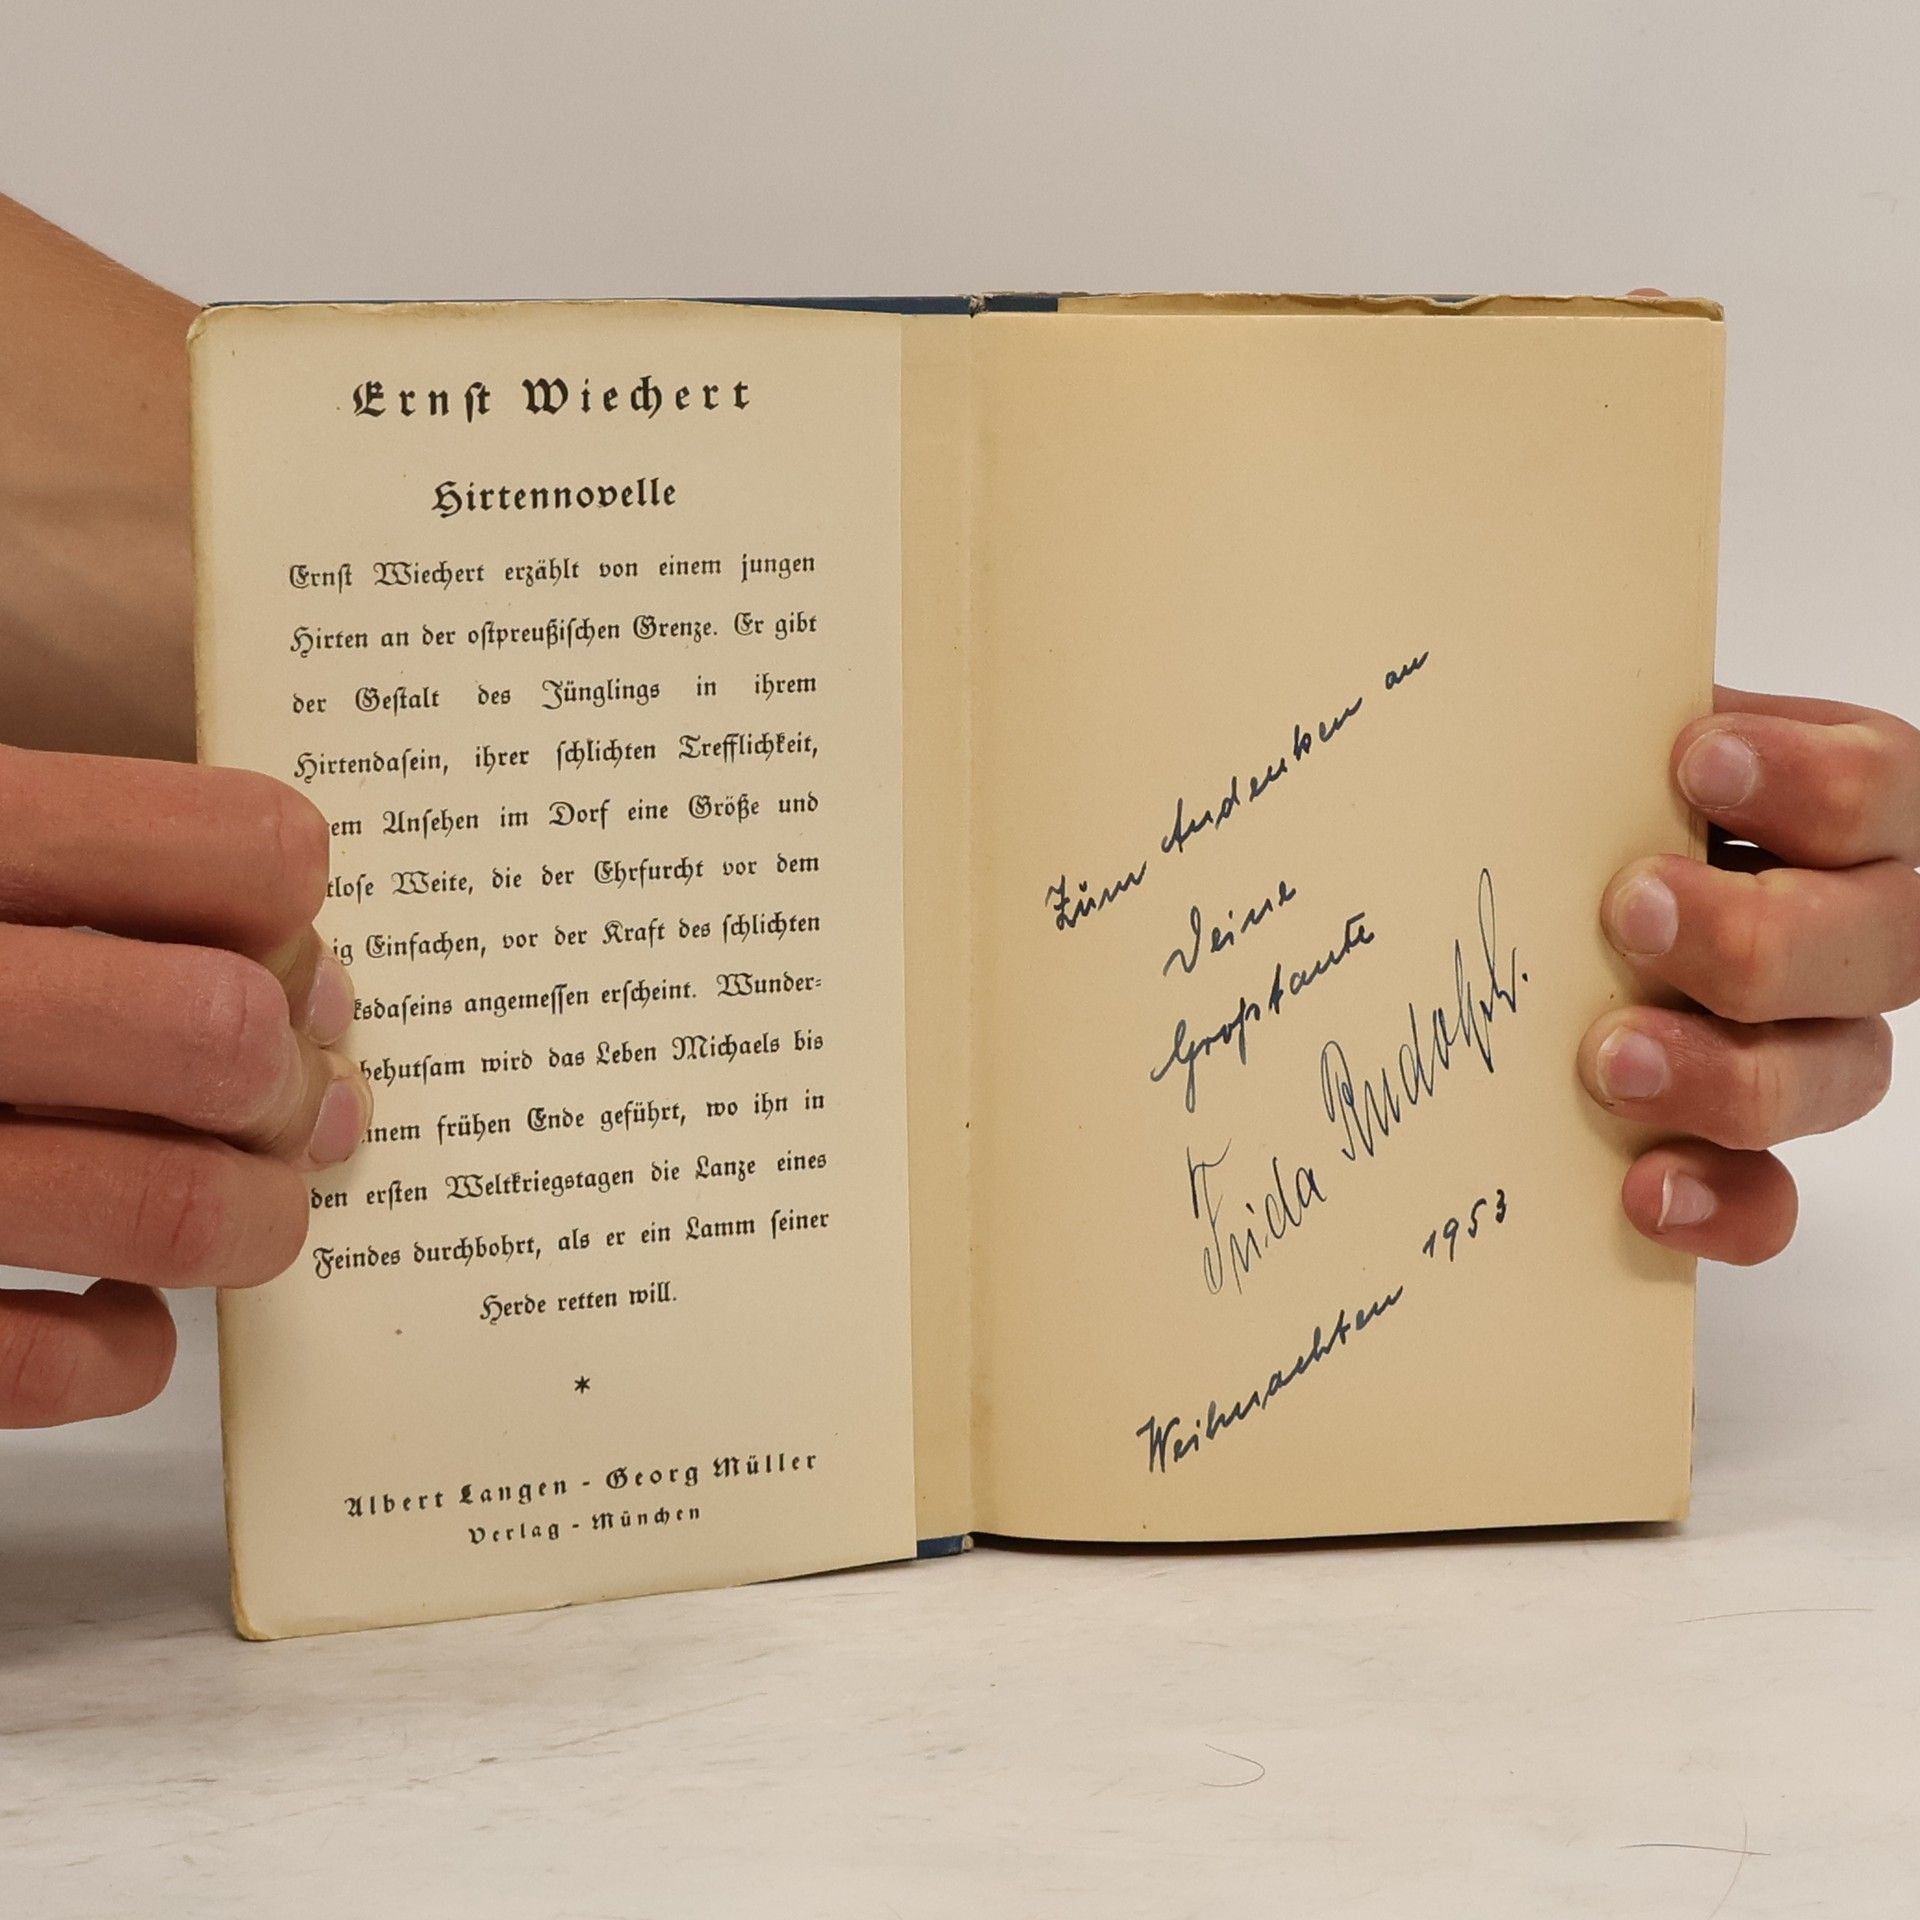 Ernſt Wiechert
Hirtennovelle
Ernſt Wiechert erzählt von einem jungen
Hirten an der oſtpreußiſchen Grenze. Er gibt
der Geſtalt des Jünglings in ihrem
Hirtendaſein, ihrer ſchlichten Trefflichkeit,
Anſehen im Dorf eine Größe und
Weite, die der Ehrfurcht vor dem
Einfachen, vor der Kraft des ſchlichten
angemeſſen erſcheint. Wunder-
behutſam wird das Leben Michaels bis
frühen Ende geführt, wo ihn in
den erſten Weltkriegstagen die Lanze eines
Feindes durchbohrt, als er ein Lamm ſeiner
Herde retten will.
*
Albert Langen - Georg Müller
Verlag - München
Zum Andenken an
Deine
Großtante
Frida Rudolph.
Weihnachten 1953